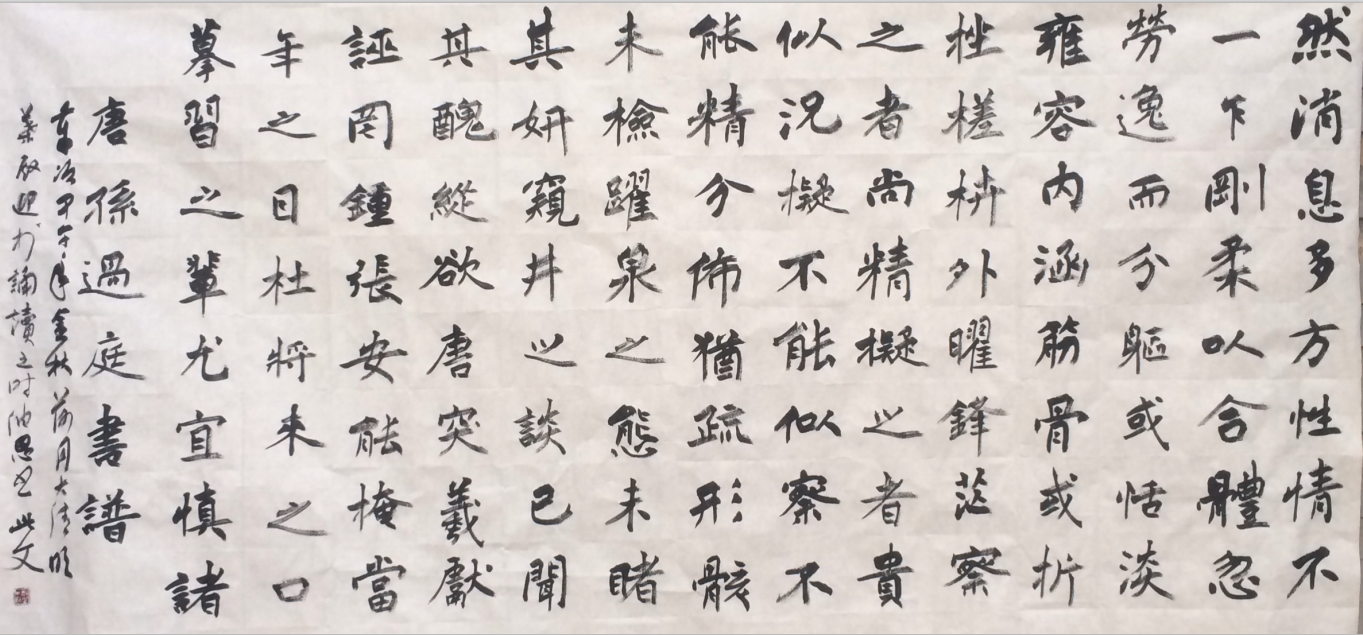 然消息多方性情不
一乍剛柔以合體忽
勞逸而分軀或恬淡
雍容内涵筋骨或折
挫槎枿外曜鋒茫察
之者尚精擬之者貴
似況擬不能似察不
能精分佈猶疏形骸
未檢躍泉之態未睹
其妍窺井之談已聞
其醜縱欲唐突羲獻
誣罔鍾張安能掩當
年之目杜將來之口
摹習之輩尤宜慎諸
唐孫過庭書譜
次甲午年金秋菊月
誦讀之時此文